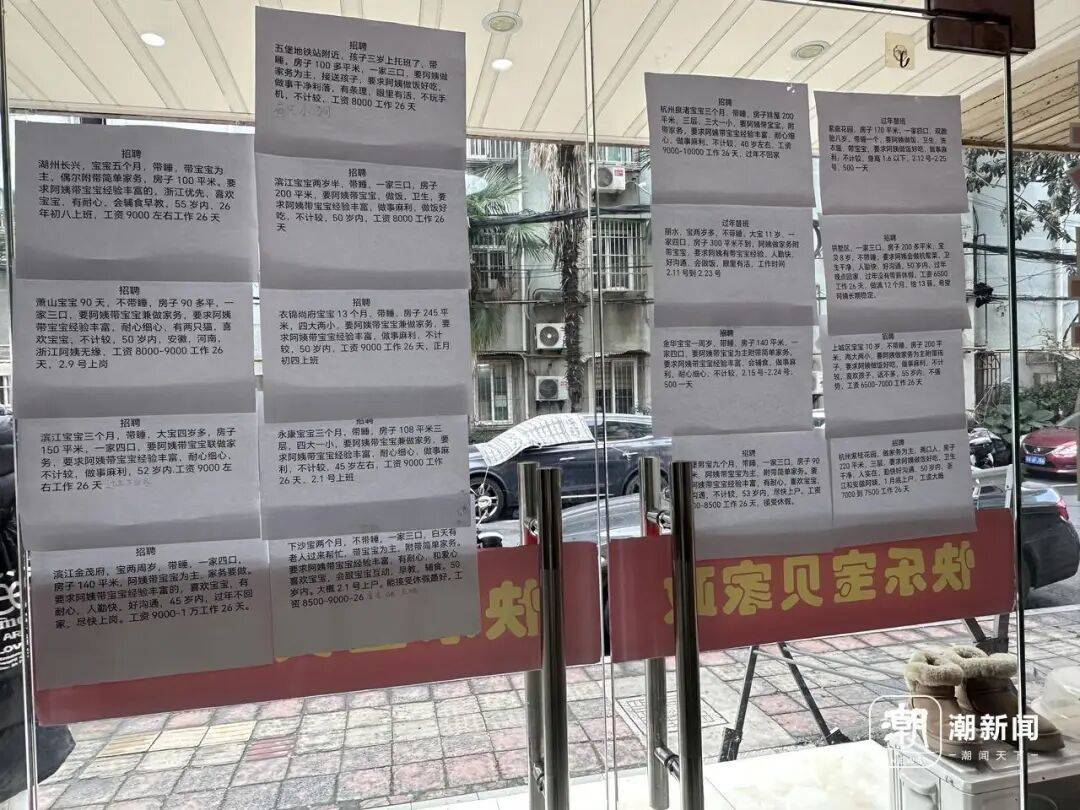 招聘
五堡地铁站附近,孩子三岁上托班了,带
睡,房子100多平米,一家三口,要阿姨做
家务为主,接送孩子,要求阿姨做饭好吃,
做事干净利落,有条理,眼里有活,不玩手
机,不计较,工资8000工作26天
招聘
湖州长兴,宝宝五个月,带睡,带宝宝为
主,偶尔附带简单家务,房子100平米。要
求阿姨带宝宝经验丰富的,浙江优先,喜欢
宝宝,有耐心,会辅食早教,55岁内,26
年初八上班,工资9000左右工作26天
招聘
滨江宝宝两岁半,带睡,一家三口,房子
200平米,要阿姨带宝宝,做饭,卫生,要
求阿姨带宝宝经验丰富,做事麻利,做饭好
吃,不计较,50岁内,工资8000工作26
天
招聘
萧山宝宝90天,不带睡,房子90多平,一
家三口,要阿姨带宝宝兼做家务,要求阿姨
带宝宝经验丰富,耐心细心,有两只猫,喜
欢宝宝,不计较,50岁内,安徽,河南,
浙江阿姨无缘,工资8000-9000工作26
天,2.9号上岗
招聘
衣锦尚府宝宝13个月,带睡,房子245平
米,四大两小,要阿姨带宝宝兼做家务,要
求阿姨带宝宝经验丰富,做事麻利,不计
较,50岁内,工资9000工作26天,正月
初四上班
招聘
滨江宝宝三个月,带睡,大宝四岁多,房子
150平米,一家四口,要阿姨带宝宝联做家
务,要求阿姨带宝宝经验丰富,耐心细心,
不计较,做事麻利,52岁内,工资9000左
右工作26天
招聘
永康宝宝三个月,带睡,房子108平米三
层,四大一小,要阿姨带宝宝兼做家务,要
求阿姨带宝宝经验丰富,耐心细心,做事麻
利,不计较,45岁左右,工资9000工作26
天,2.1号上班
招聘
滨江金茂府,宝两周岁,带睡,一家四口,
房子140平米,阿姨带宝宝为主,家务要做。
要求阿姨带宝宝经验丰富的,喜欢宝宝,有
耐心,人勤快,好沟通,45岁内,过年不回
家,尽快上岗。工资9000-1万工作26天。
招聘
下沙宝两个月,不带睡,一家三口,白天有
老人过来帮忙,带宝宝为主,附带简单家务。
要求阿姨带宝宝经验丰富,有耐心,和爱心
喜欢宝宝,会跟宝宝互动,早教,辅食。50
岁内。大概2.1号上户,能接受休假最好,工
资8500-9000-26
招聘
杭州良渚宝宝三个月,带睡,房子排屋200
平米,三层,三大一小,要阿姨带宝宝,附
带家务,要求阿姨带宝宝经验丰富,耐心细
心,做事麻利,不计较,40岁左右,工资
9000-10000工作26天,过年不回家
过年替班
丽水,宝两岁多,不带睡,大宝11岁,一
家四口,房子300平米不到,阿姨做家务附
带宝宝,要求阿姨有带宝宝经验,人勤快,
好沟通,会做饭,眼里有活,工作时间
2.11号到2.23号
招聘
金华宝宝一周岁,带睡,房子140平米,一
家四口,要阿姨带宝宝为主附带简单家务,
要求阿姨带宝宝经验丰富,会辅食,做事麻
利,耐心细心,不计较,2.15号-2.24号,
500一天
招聘
宝九个月,不带睡,房子90
米,带宝宝为主,附带简单家务。要
阿姨带宝宝经验丰富,有耐心,喜欢宝宝,
沟通,不计较,53岁内,尽快上户,工资
00-8500工作26天,接受休假。
过年替班
花园,房子170平米,一家四口,双胞
胎八岁,带睡一个,要阿姨做饭,卫生,洗
衣服,带宝宝,要求阿姨做饭好吃,做事麻
利,不计较,身高1.6以下,2.12号-2.25
号,500一天
招聘
拱墅区,一家三口,房子200多平米,宝
贝8岁,不带睡,要求阿姨会做杭帮菜,卫生
干净,人勤快,好沟通,50岁内,过年
晚点回家,过年没有带薪休假,工资6500
工作26天,做满12个月,给13薪,希望
阿姨长期稳定。
招聘
上城区宝宝10岁,不带睡,房子200平
米,两大两小,要阿姨做家务为主附带孩
子,要求阿姨做饭好吃,做事麻利,不计
较,喜欢孩子,话不多,55岁内,不强
势,工资6500-7000工作26天
招聘
杭州紫桂花园,做家务为主,两口人,房子
220平米,三层,要求阿姨做饭好吃,卫生
干净,人实在,勤快好沟通,50岁内,浙
江和安徽阿姨,1月底上户,工资大概
7000到7500工作26天
快乐宝贝家政
潮 潮新闻
潮闻天下